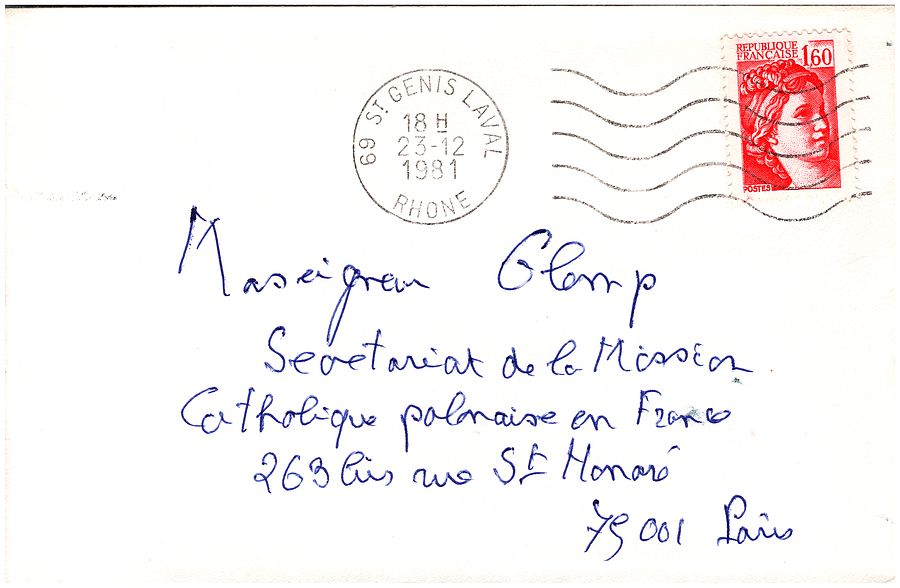 REPUBLIQUE
FRANÇAISE 1,60
POSTES
69 ST GENIS LAVAL
18 H
23-12
1981
RHONE
Monseigneur Glemp
Secretariat de la Mission
Catholique polonaise en France
263 bis rue St Honoré
75001 Paris